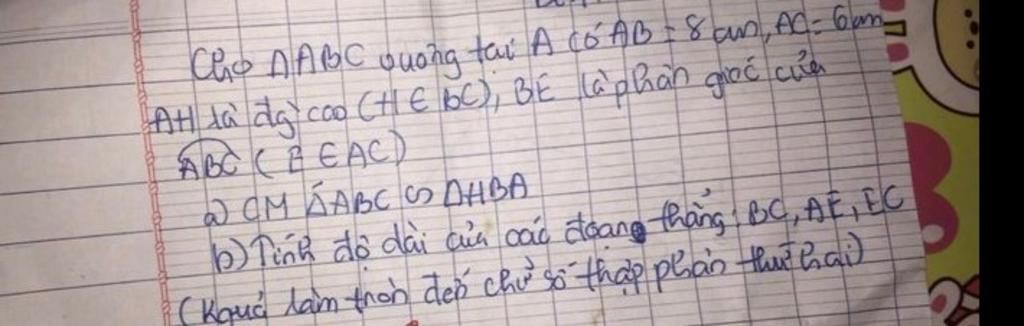 Cho ΔABC vuông tại A có AB = 8 cm, AC = 6cm
AH là đg cao (H ∈ BC), BE là phân giác của
ABC (E ∈ AC)
a) CM ΔABC ∽ ΔHBA
b) Tính độ dài của các đoạn thẳng BC, AE, EC
(Kquả làm tròn đến chữ số thập phân thứ hai)